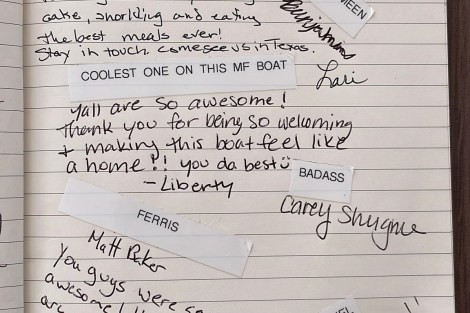 cake, snorkling and eating
the best meals ever!
Stay in touch. come see us in Texas.
MEEN
COOLEST ONE ON THIS MF BOAT
Lari
Yall are so awesome!
Thank you for being so welcoming
+ making this boat feel like
a home?!! you da best☺
- Liberty
BADASS
Carey
FERRIS
Matt Baker
You guys were so
awesome!
are